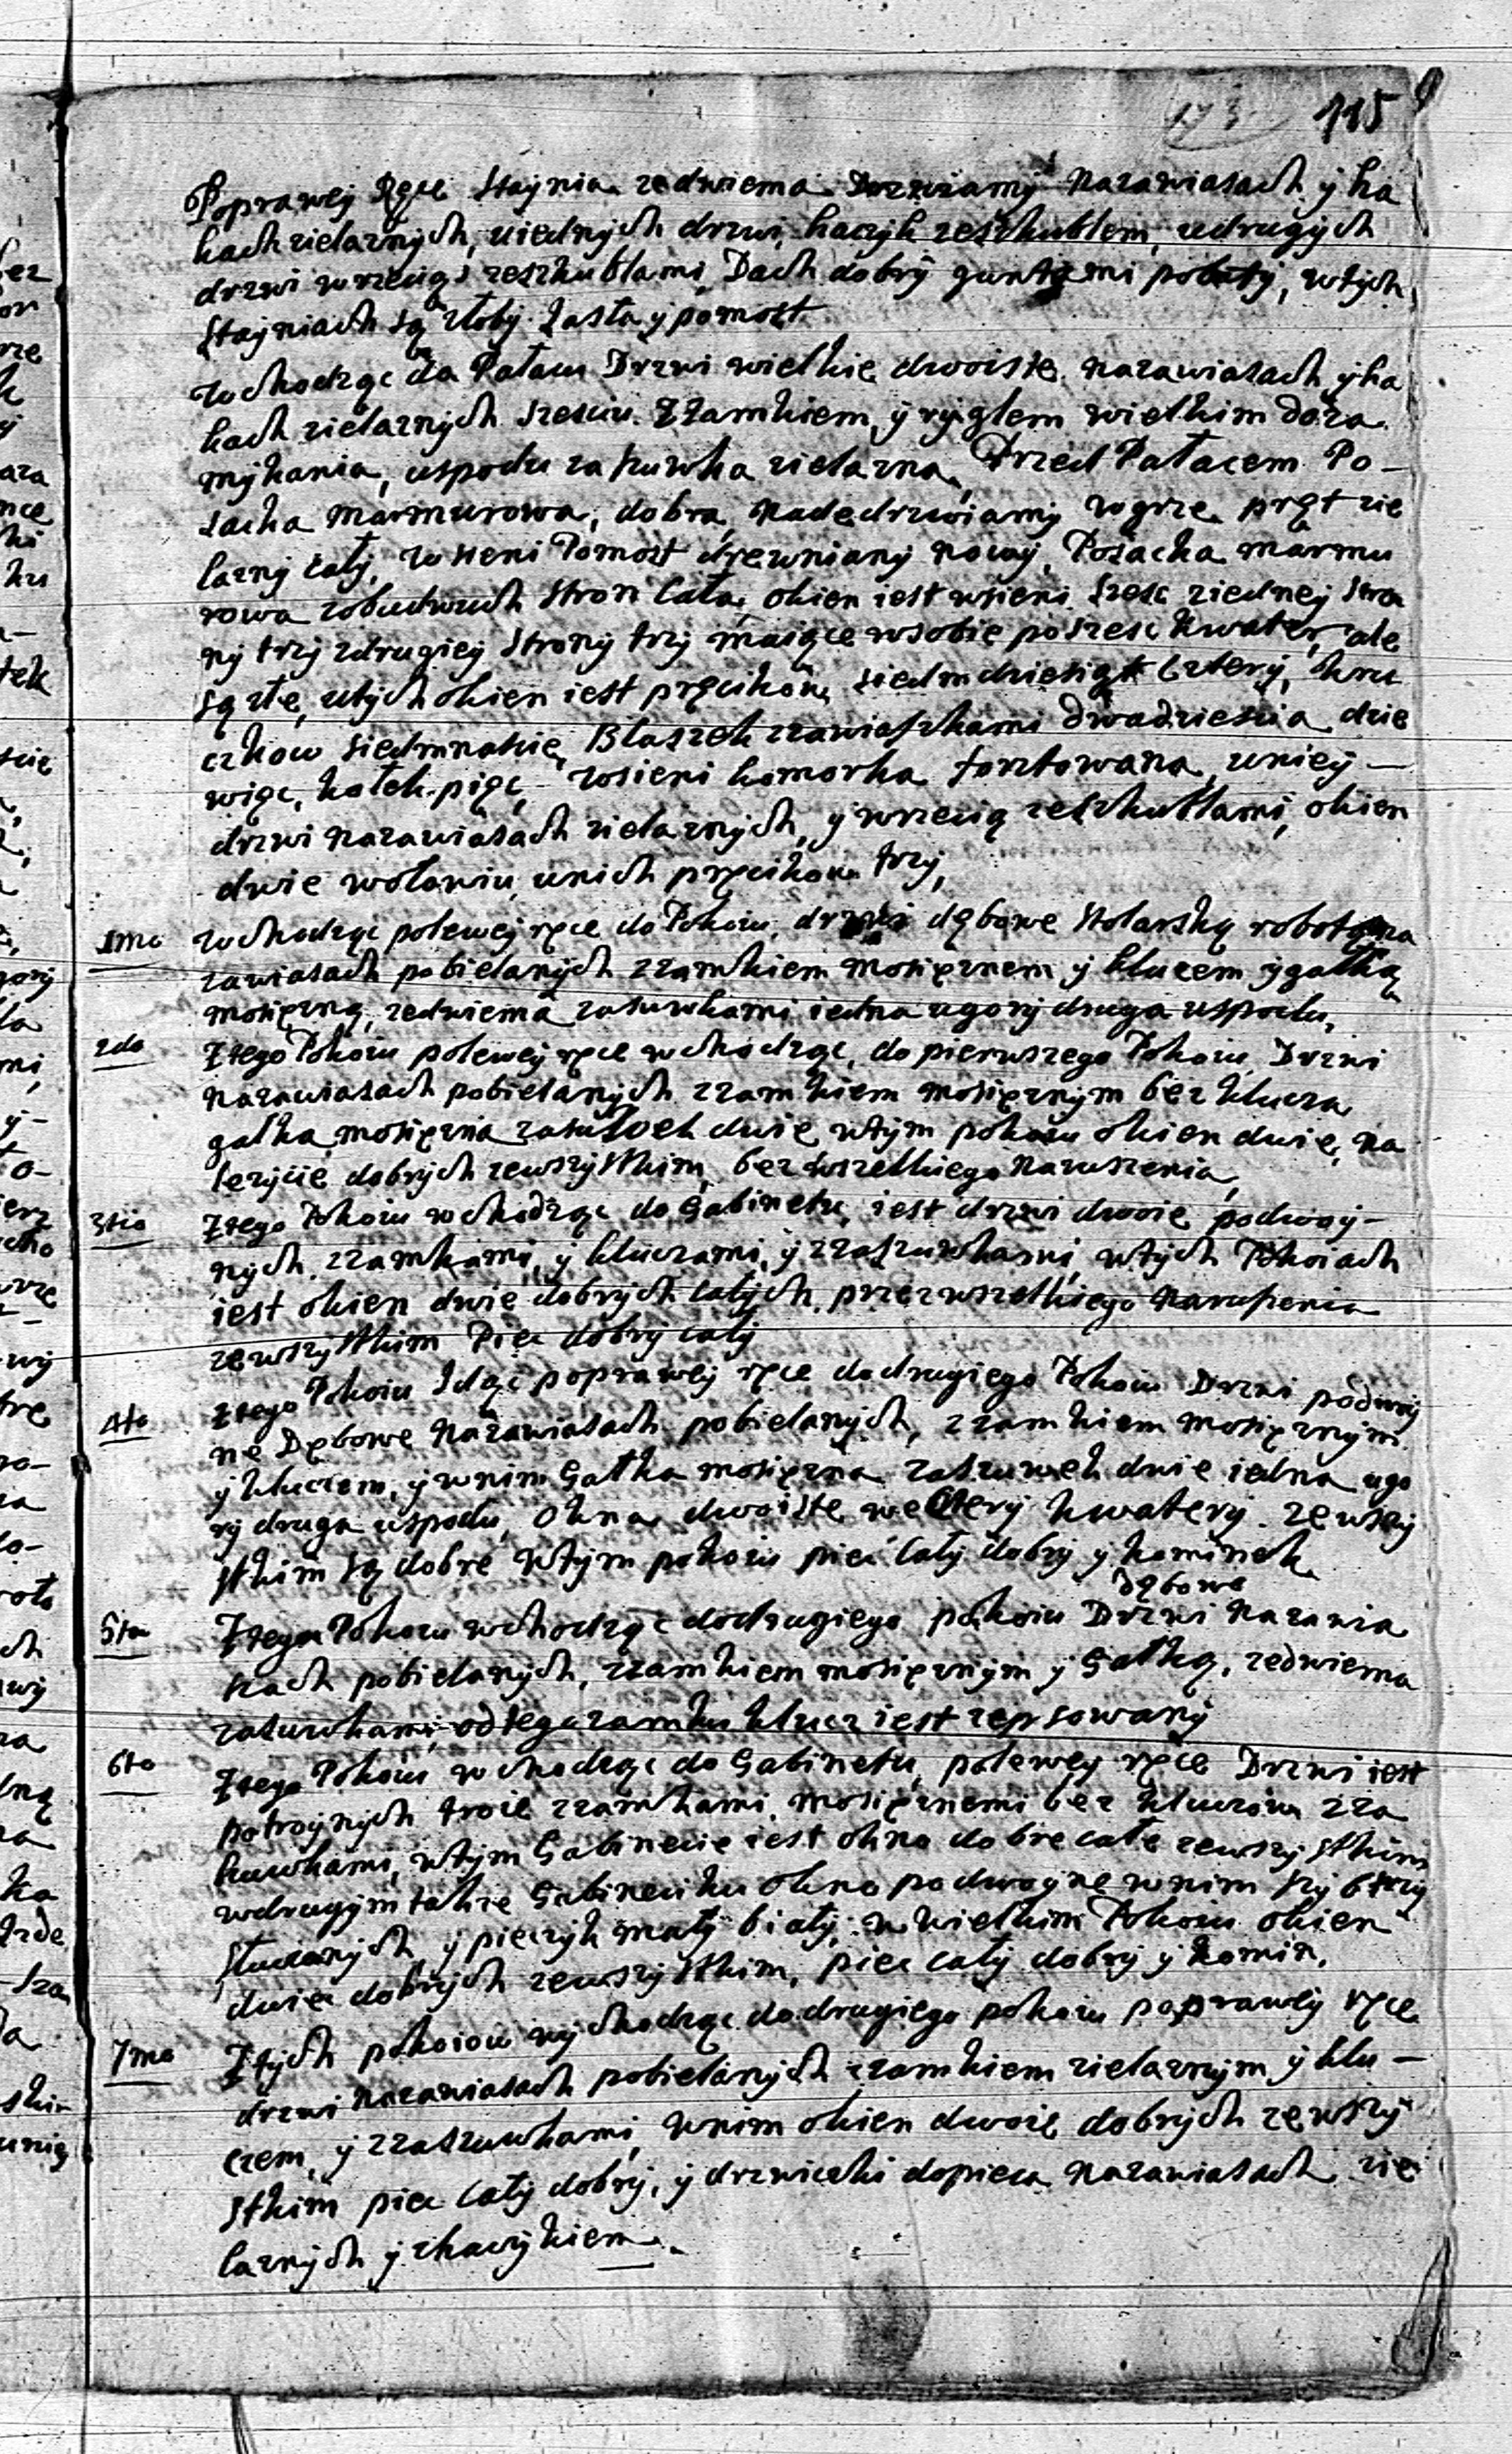 173 115
Poprawey Ręce Staynia zedwiema Drzwiamy nazawiasach y ha
kach zielaznych, uiednych drzwi haczyk zeszkublem, udrugych
drzwi wrzeciąs zeszkublami, Dach dobry guntami pobity, wtych
Stayniach są złoby Jasła y pomost
Wchodząc do Pałacu Drzwi wielkie dwoiste nazawiasach y ha
kach zielaznych Szesciu. Zzamkiem, y ryglem wielkim doza
mykania, uspodu zasuwka zielazna, Przed Pałacem Po-
sacka Marmurowa, dobra, nadedrzwiamy wgrze pręt zie
lazny cały, w sieni Pomost drewniany nowy, Posacka marmu
rowa zobudwuch stron cała, okien iest wsieni szesc ziedney stro
ny trzy zdrugiey strony trzy maiące wsobie poszesc kwater, ale
są złe, utych okien iest pręcikow siedmdziesiąt cztery, kru
czkow siedmnascie, Blaszek zzawiaszkami dwadziescia dzie
więc, kołek pięc, wsieni komorka fortowana, uniey -
drzwi nazawiasach zielaznych, y wrzecią zeszkublami, okien
dwie wołowiu unich pręcikow trzy,
1mo Wchodząc polewey ręce do Pokoiu, drzwi dębowe Stolarską robotą na
zawiasach pobielanych zzamkiem mosięznem y kluczem y gałką
mosięzną, zedwiema zasuwkami iedna ugory druga uspodu,
2do Ztego Pokoiu polewey ręce wchodząc, do pierwszego Pokoiu Drzwi
nazawiasach pobielanych zzamkiem mosięznym bez klucza
gałka mosięzna zasuwek dwie wtym pokoiu okien dwie, na
lezycie dobrych zewszystkim, bez wszelkiego naruszenia,
3tio Ztego Pokoiu wchodząc do Gabinetu, iest drzwi dwoie podwoy-
nych zzamkami, y kluczami, y zzaszuwkami, wtych Pokoiach
iest okien dwie dobrych całych, przezwszelkiego naruszenia
zewszystkim Piec dobry cały
4to Ztego Pokoiu Idąc poprawey ręce dodrugiego Pokoiu Drzwi podwoy
ne Dębowe nazawiasach pobielanych, zzamkiem mosięznym
y kluczem, y wnim Gałka mosięzna zaszuwek dwie iedna ugo
ry druga uspodu, Okna dwoiste wecztery kwatery. zewszy
stkim są dobre wtym pokoiu piec cały dobry y kominek
5to Ztego Pokoiu wchodząc dodrugiego pokoiu Drzwi dębowe nazawia
szach pobielanych, zzamkiem mosięznym y Gałką, zedwiema
zasuwkami, od tego zamku klucz iest zepsowany
6to Ztego Pokoiu wchodząc do Gabinetu, polewey ręce Drzwi iest
potroynych troie zzamkami mosięznemi bez kluczow zza
suwkami, wtym Gabinecie iest okno dobre całe zewszystkim
wdrugym takze Gabineciku Okno podwoyne wnim szyb trzy
stłuczonych, y pieczyk mały biały, w wielkim Pokoiu okien
dwie dobrych zewszystkim, piec cały dobry y komin,
7mo Ztych pokoiow wychodząc dodrugiego pokoiu poprawey ręce
drzwi nazawiasach pobielanych zzamkiem zielaznym y klu-
czem, y zzaszuwkami, wnim okien dwoie dobrych zewszy
stkim piec cały dobry, y drzwiczki dopieca nazawiasach zie
laznych y zhaczykiem.